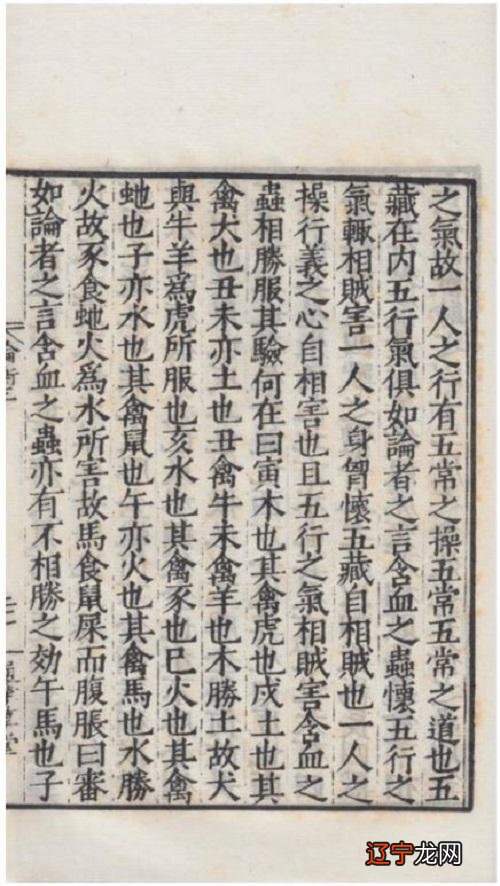 之氣故一人之行有五常之操五常五常之道也五
藏在内五行氣俱如論者之言含血之蟲懷五行之
氣輙相賊害一人之身胷懷五藏自相賊也一人之
操行義之心自相害也且五行之氣相賊害含血之
蟲相勝服其驗何在曰寅木也其禽虎也戍土也其
禽犬也丑未亦土也丑禽牛未禽羊也木勝土故犬
與牛羊爲虎所服也亥水也其禽豕也巳火也其禽
虵也子亦水也其禽鼠也午亦火也其禽馬也水勝
火故豕食虵火爲水所害故馬食鼠屎而腹脹曰審
如論者之言含血之蟲亦有不相勝之効午馬也子
辽宁龙网